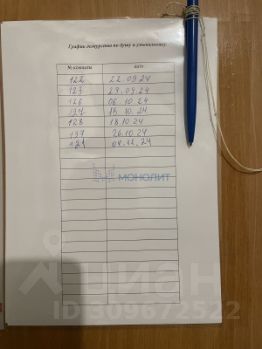 График дежурства по душу и умывальнику.
№ комнаты дата
122 22.09.24
123 29.09.24
126 06.10.24
127 13.10.24
128 18.10.24
137 26.10.24
121 04.11.24
МОНОЛИТ
циан
ID 309672522